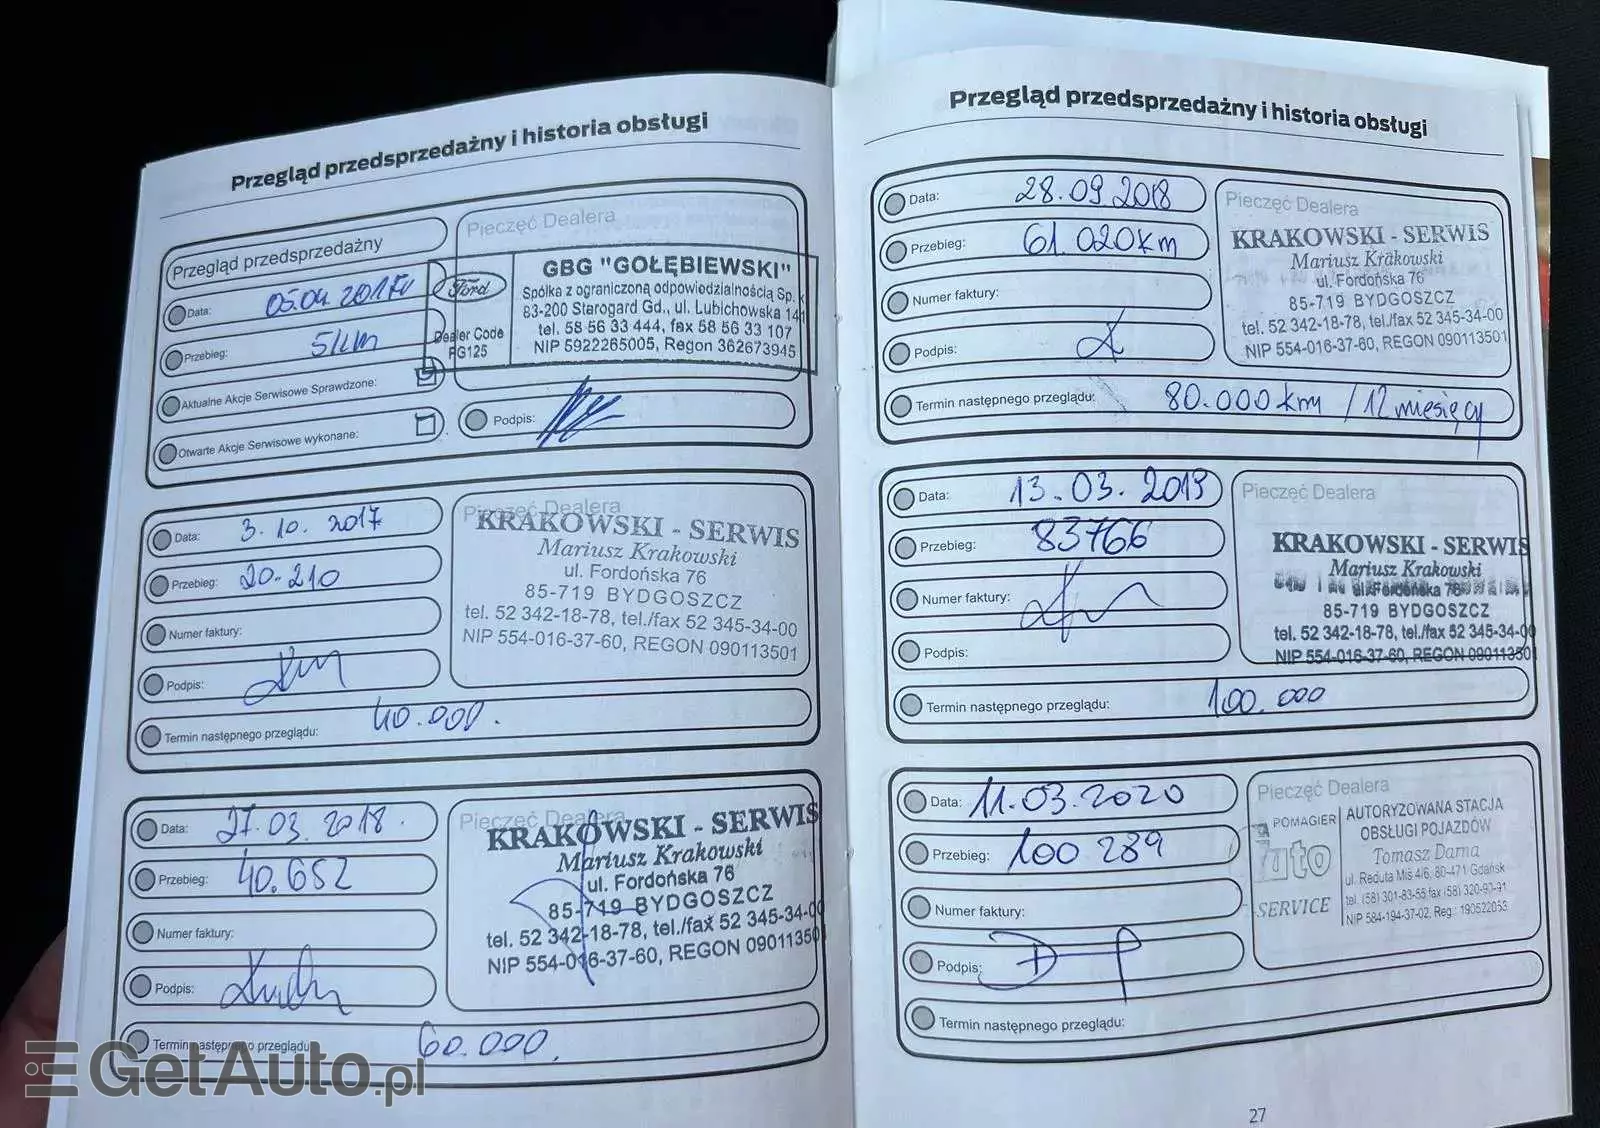 Przegląd przedsprzedażny i historia obsługi
Przegląd przedsprzedażny
Data: 05.04.2017r
Przebieg: 5km
Aktualne Akcje Serwisowe Sprawdzone:
Otwarte Akcje Serwisowe wykonane:
Pieczęć Dealera
Ford
Dealer Code
PG125
GBG "GOŁĘBIEWSKI"
Spółka z ograniczoną odpowiedzialnością Sp. k
83-200 Starogard Gd., ul. Lubichowska 141
tel. 58 56 33 444, fax 58 56 33 107
NIP 5922265005, Regon 362673945
Podpis:
Data: 3.10.2017
Przebieg: 20.210
Numer faktury:
Podpis:
Termin następnego przeglądu: 40.000.
Pieczęć Dealera
KRAKOWSKI - SERWIS
Mariusz Krakowski
ul. Fordońska 76
85-719 BYDGOSZCZ
tel. 52 342-18-78, tel./fax 52 345-34-00
NIP 554-016-37-60, REGON 090113501
Data: 27.03.2018.
Przebieg: 40.652
Numer faktury:
Podpis:
Termin następnego przeglądu: 60.000.
Pieczęć Dealera
KRAKOWSKI - SERWIS
Mariusz Krakowski
ul. Fordońska 76
85-719 BYDGOSZCZ
tel. 52 342-18-78, tel./fax 52 345-34-00
NIP 554-016-37-60, REGON 09011350
Przegląd przedsprzedażny i historia obsługi
Data: 28.09.2018
Przebieg: 61.020km
Numer faktury:
Podpis:
Termin następnego przeglądu: 80.000km / 12 miesięcy
Pieczęć Dealera
KRAKOWSKI - SERWIS
Mariusz Krakowski
ul. Fordońska 76
85-719 BYDGOSZCZ
tel. 52 342-18-78, tel./fax 52 345-34-00
NIP 554-016-37-60, REGON 090113501
Data: 13.03.2019
Przebieg: 83766
Numer faktury:
Podpis:
Termin następnego przeglądu: 100.000
Pieczęć Dealera
KRAKOWSKI - SERWIS
Mariusz Krakowski
ul. Fordońska 76
85-719 BYDGOSZCZ
tel. 52 342-18-78, tel./fax 52 345-34-00
NIP 554-016-37-60, REGON 090113501
Data: 11.03.2020
Przebieg: 100 289
Numer faktury:
Podpis:
Termin następnego przeglądu:
Pieczęć Dealera
POMAGIER
auto
SERVICE
AUTORYZOWANA STACJA
OBSŁUGI POJAZDÓW
Tomasz Dama
ul. Reduta Miś 4/6, 80-471 Gdańsk
tel. (58) 301-83-55 fax (58) 320-90-91
NIP 584-194-37-02, Reg.: 190522053
27
GetAuto.pl